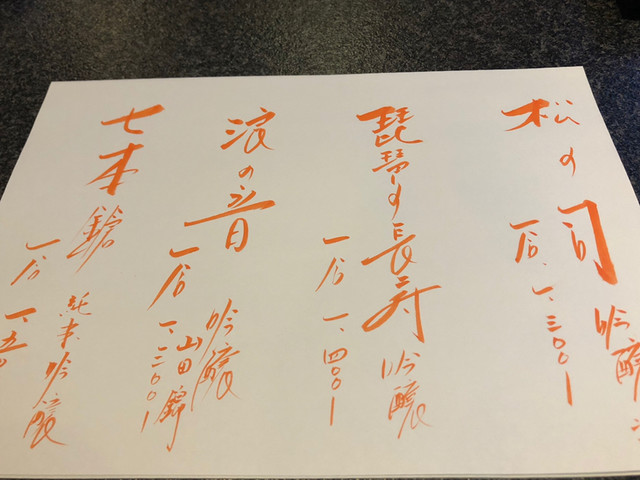 松の司 吟醸
一合 一、三〇〇ー
琵琶の長寿 吟醸
一合 一、四〇〇ー
浪の音 吟醸 山田錦
一合 一、三〇〇ー
七本鎗 純米吟醸
一合 一、五〇